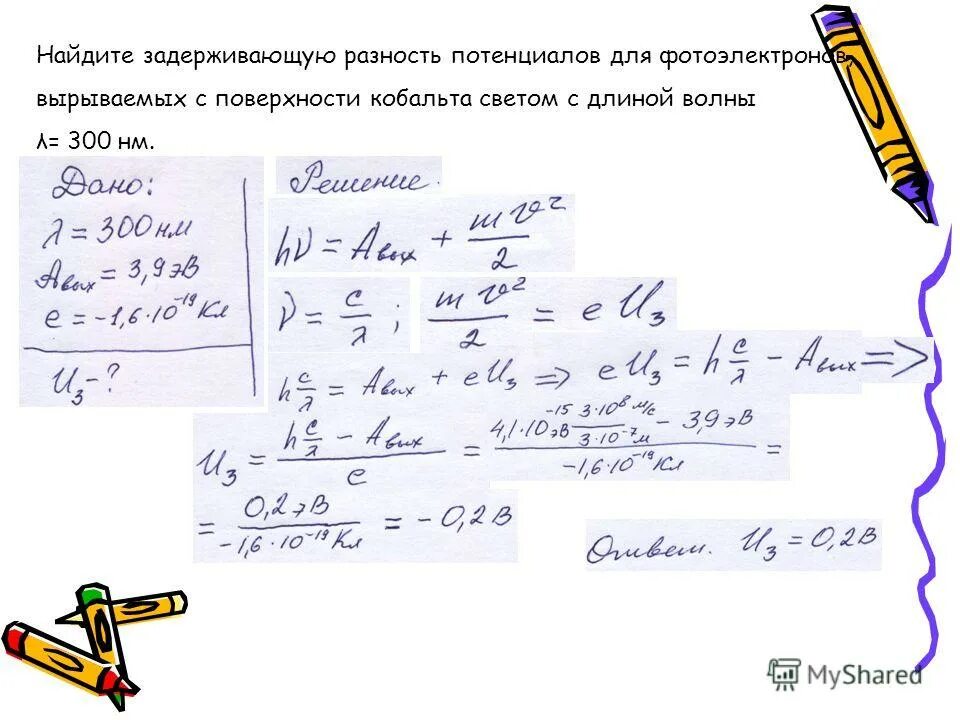 Найдите задерживающую разность потенциалов для фотоэлектронов,
вырываемых с поверхности кобальта светом с длиной волны
λ= 300 нм.
Дано:
λ = 300 нм
Aвых = 3,9 эВ
e = -1,6·10⁻¹⁹ Кл
Uз - ?
Решение.
hν = Aвых + mv²/2
ν = c/λ ; mv²/2 = eUз
h c/λ = Aвых + eUз => eUз = h c/λ - Aвых =>
Uз = (h c/λ - Aвых)/e = (4,1·10⁻¹⁵ эВ 3·10⁸ м/с / 3·10⁻⁷ м - 3,9 эВ)/(-1,6·10⁻¹⁹ Кл) =
= 0,2 эВ/(-1,6·10⁻¹⁹ Кл) = - 0,2 В
Ответ. Uз = 0,2 В
MyShared